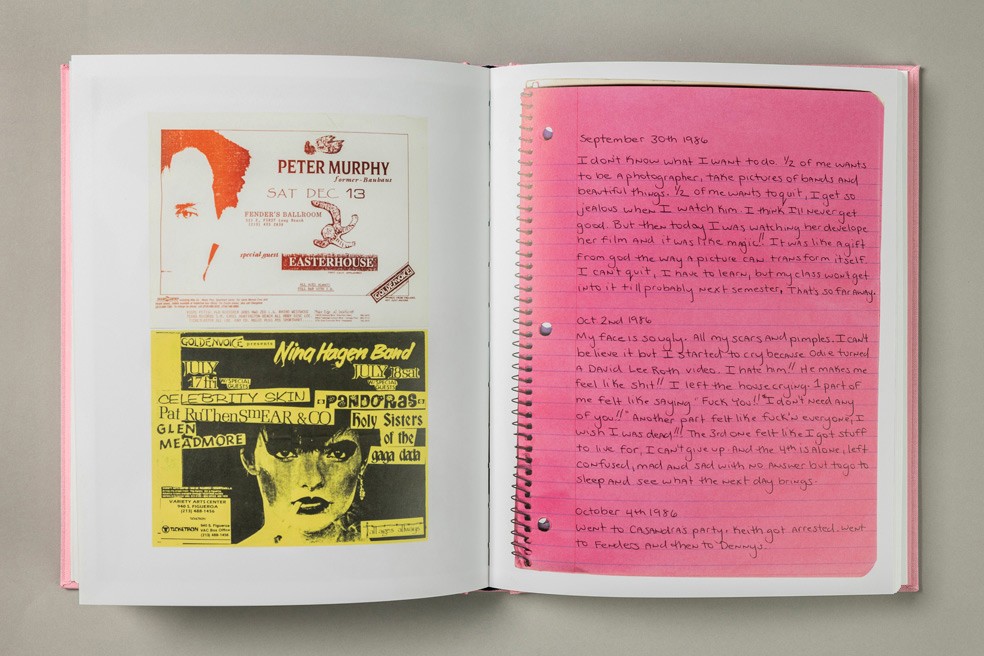 PETER MURPHY
former-Bauhaus
SAT DEC 13
FENDER'S BALLROOM
special guest
EASTERHOUSE
GOLDENVOICE
GOLDENVOICE presents
Nina Hagen Band
JULY 17th
W/SPECIAL GUESTS
JULY 18sat
W/SPECIAL GUESTS
CELEBRITY SKIN
PANDORAS
Pat RuThenSMEAR & CO
GLEN MEADMORE
Holy Sisters
of the
gaga dada
VARIETY ARTS CENTER
940 S. FIGUEROA
(213) 488-1456
TICKETRON
940 S. Figueroa
VAC Box Office
(213) 488-1456
September 30th 1986
I dont know what I want to do. 1/2 of me wants
to be a photographer, take pictures of bands and
beautiful things. 1/2 of me wants to quit, I get so
jealous when I watch Kim. I think I'll never get
good. But then today I was watching her develope
her film and it was like magic!! It was like a gift
from god the way a picture can transform itself.
I can't quit, I have to learn, but my class wont get
into it till probably next semester, That's so far away.
Oct 2nd 1986
My face is so ugly. All my scars and pimples. I can't
believe it but I started to cry because Odie turned
a David Lee Roth video. I hate him!! He makes me
feel like shit!! I left the house crying. 1 part of
me felt like saying "Fuck You!! I don't need any
of you!!" Another part felt like fuck'n everyone, I
wish I was dead!!! The 3rd one felt like I got stuff
to live for, I can't give up. And the 4th is alone, left
confused, mad and sad with no answer but to go to
sleep and see what the next day brings.
October 4th 1986
Went to Casandras party. Keith got arrested. Went
to Fenders and then to Dennys.